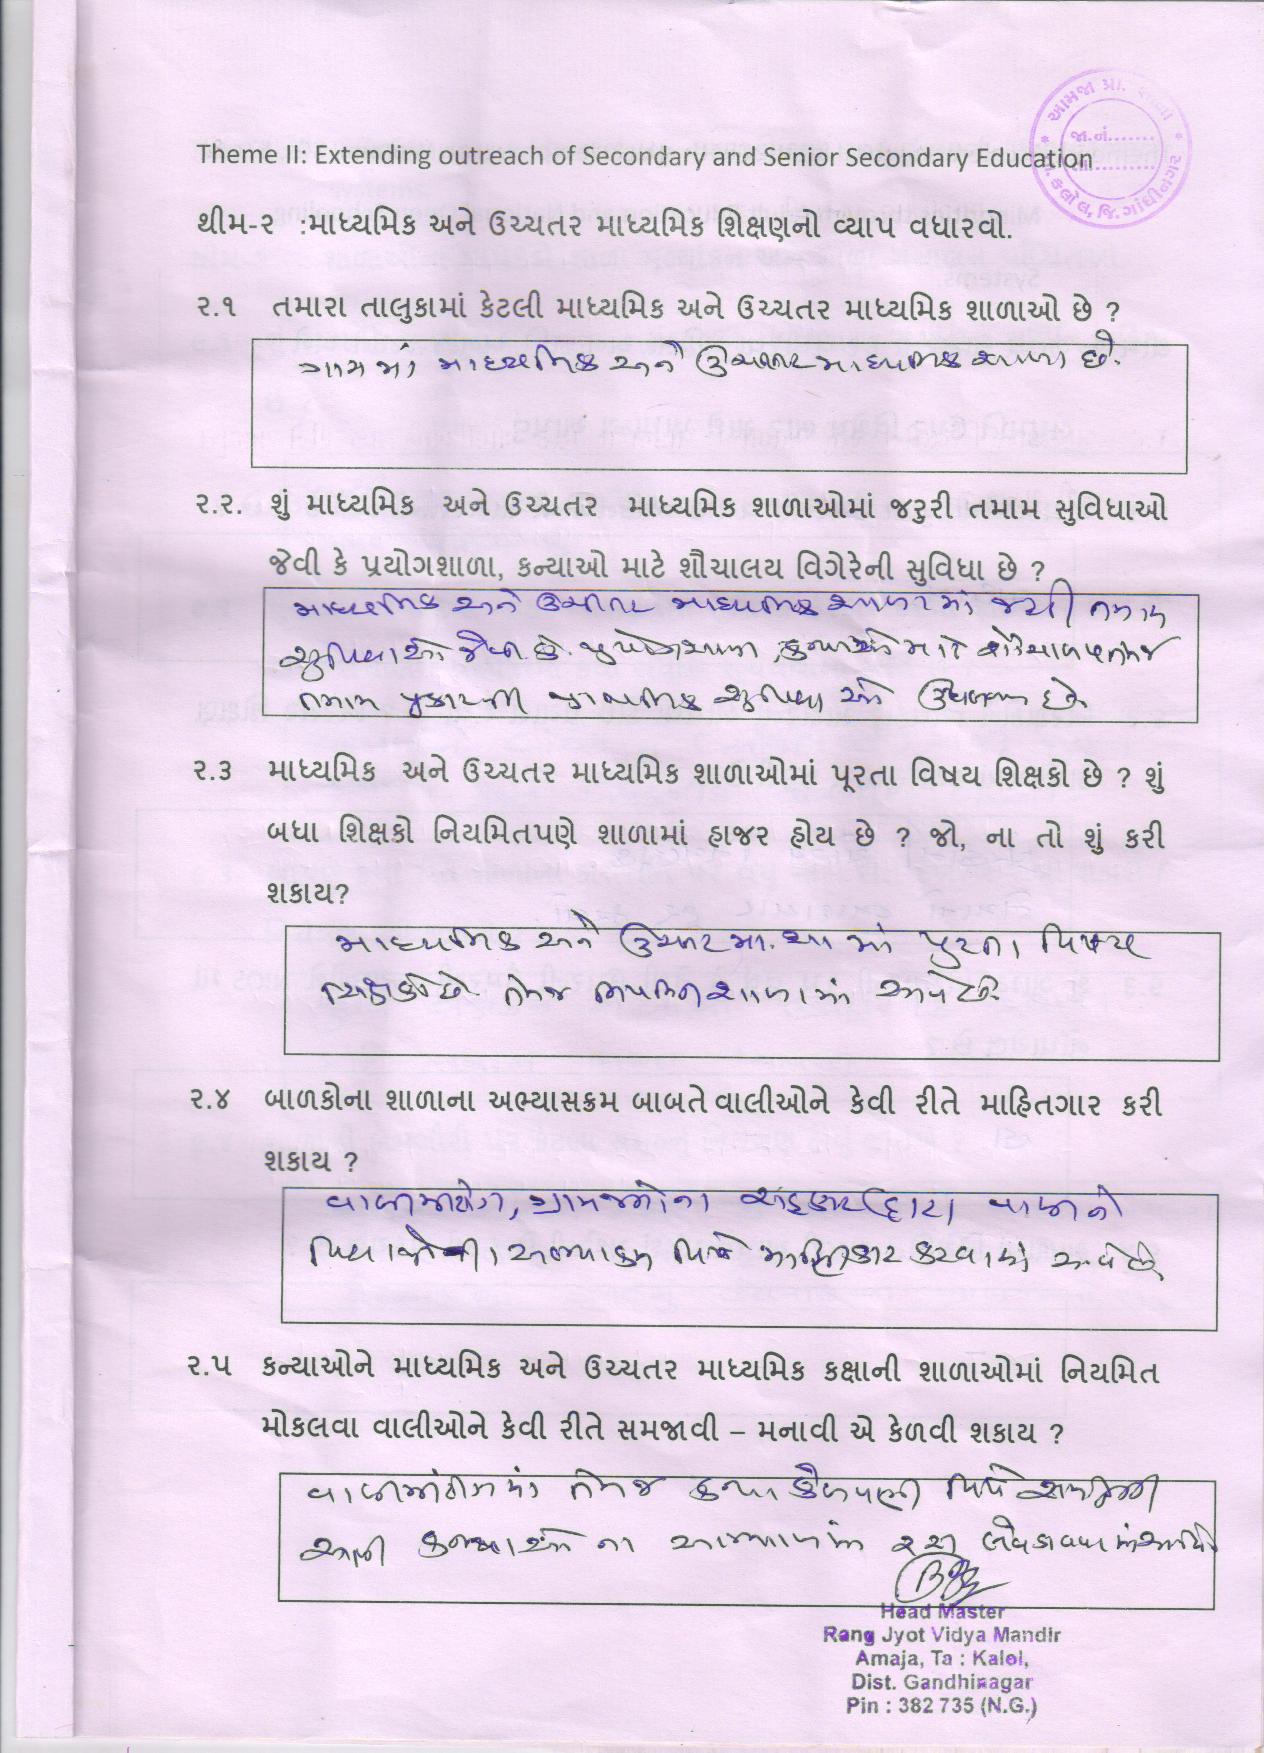 આમજા પ્રા.
જા.નં.......
તા..........
કલોલ, જિ. ગાંધીનગર
Theme II: Extending outreach of Secondary and Senior Secondary Education
થીમ-૨ :માધ્યમિક અને ઉચ્ચતર માધ્યમિક શિક્ષણનો વ્યાપ વધારવો.
૨.૧ તમારા તાલુકામાં કેટલી માધ્યમિક અને ઉચ્ચતર માધ્યમિક શાળાઓ છે ?
ગામમાં માધ્યમિક અને ઉચ્ચતર માધ્યમિક શાળા છે.
૨.૨. શું માધ્યમિક અને ઉચ્ચતર માધ્યમિક શાળાઓમાં જરુરી તમામ સુવિધાઓ
જેવી કે પ્રયોગશાળા, કન્યાઓ માટે શૌચાલય વિગેરેની સુવિધા છે ?
માધ્યમિક અને ઉચ્ચતર માધ્યમિક શાળામાં જરૂરી તમામ
સુવિધાઓ જેવી કે. પ્રયોગશાળા, કન્યાઓ માટે શૌચાલય તેમજ
તમામ પ્રકારની પ્રાથમિક સુવિધાઓ ઉપલબ્ધ છે.
૨.૩ માધ્યમિક અને ઉચ્ચતર માધ્યમિક શાળાઓમાં પૂરતા વિષય શિક્ષકો છે ? શું
બધા શિક્ષકો નિયમિતપણે શાળામાં હાજર હોય છે ? જો, ના તો શું કરી
શકાય?
માધ્યમિક અને ઉચ્ચતર મા. શા માં પુરતા વિષય
શિક્ષકો છે. તેમજ નિયમિત શાળામાં આવે છે.
૨.૪ બાળકોના શાળાના અભ્યાસક્રમ બાબતે વાલીઓને કેવી રીતે માહિતગાર કરી
શકાય ?
વાલીમીટીંગ, ગ્રામજનોના સહકાર દ્વારા વાલીને
વિદ્યાર્થીઓની અભ્યાસક્રમ વિષે માહિતગાર કરવામાં આવે છે.
૨.૫ કન્યાઓને માધ્યમિક અને ઉચ્ચતર માધ્યમિક કક્ષાની શાળાઓમાં નિયમિત
મોકલવા વાલીઓને કેવી રીતે સમજાવી – મનાવી એ કેળવી શકાય ?
વાલીમીટીંગમાં તેમજ કન્યા કેળવણી વિષે સમજુતી
આપી કન્યાઓ ના અભ્યાસમાં રસ લેવડાવવામાં આવે
Head Master
Rang Jyot Vidya Mandir
Amaja, Ta : Kalol,
Dist. Gandhinagar
Pin : 382 735 (N.G.)